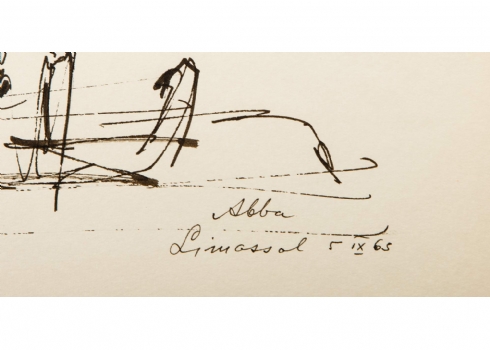 Abba
Limassol 5 IX 65